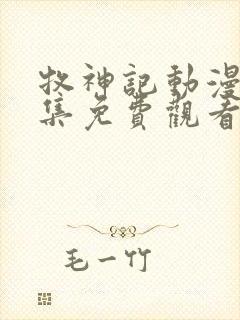 牧神記動漫
集免費觀看
毛一竹